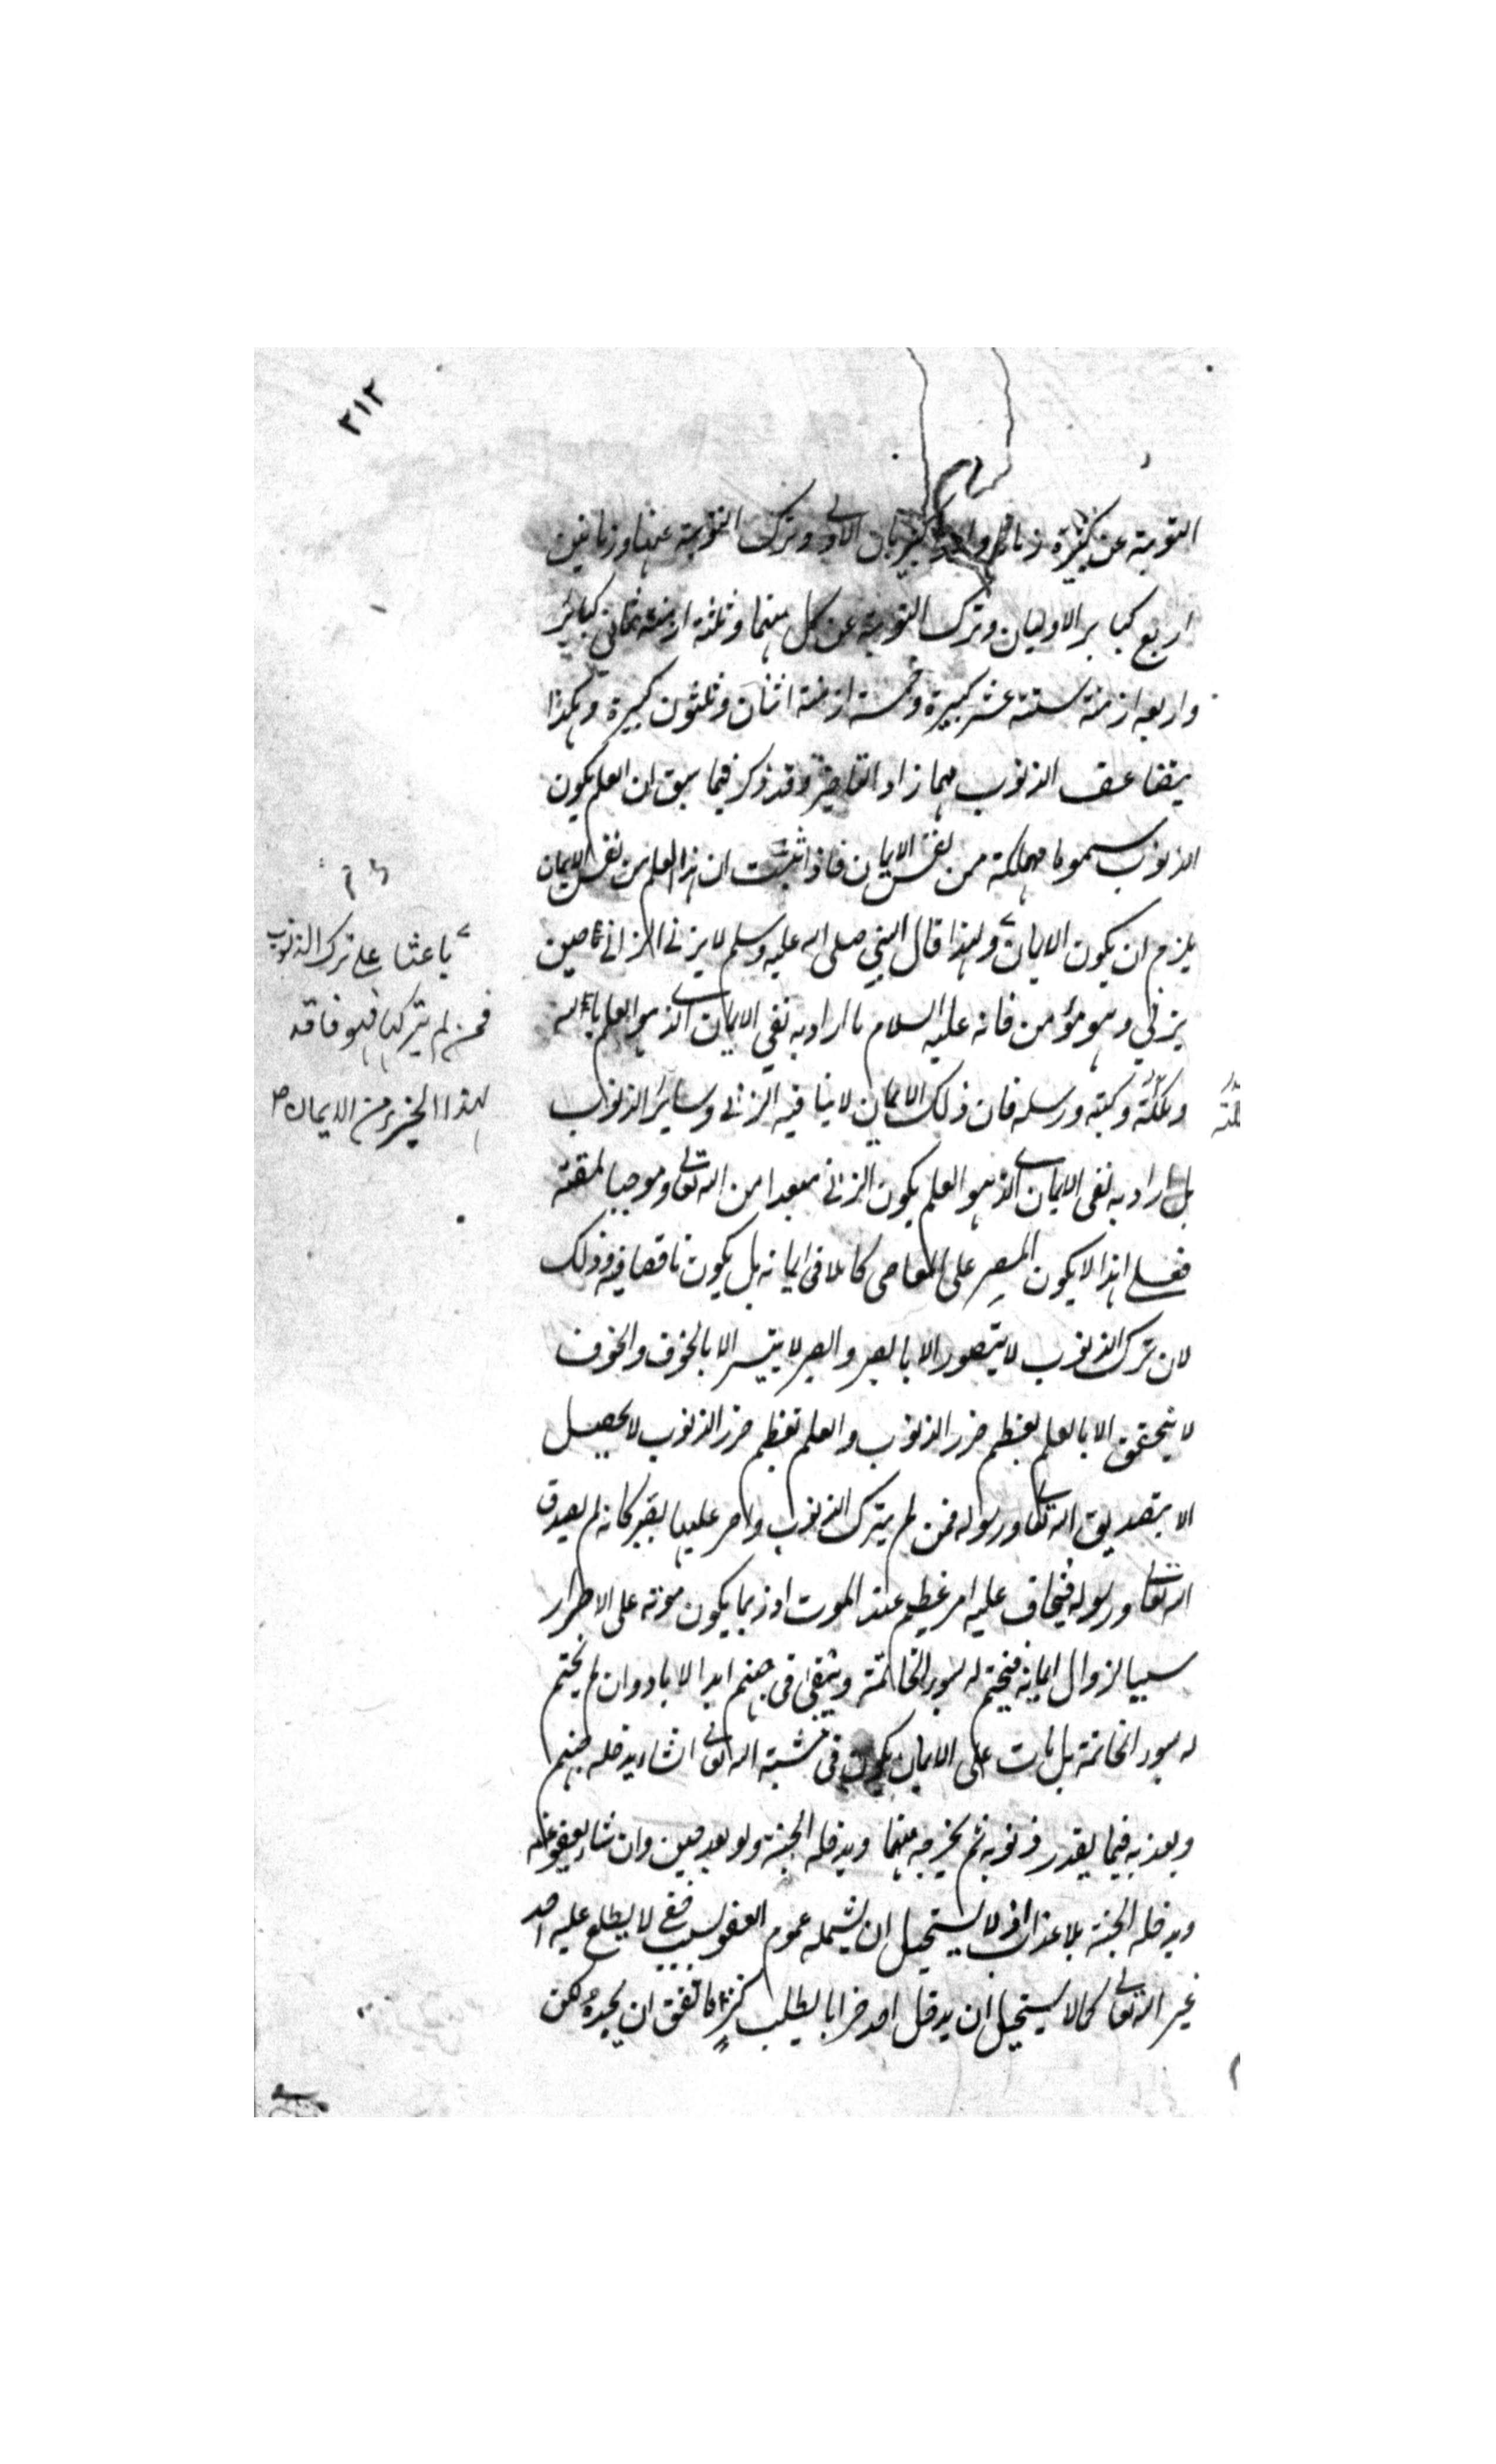 ٢١٢
التوبة عن كبيرة زمانا واحدا كبيرتان الاولى وترك التوبة عنها وزمانين
اربع كبائر الاوليان وترك التوبة عن كل منهما وثلثة ازمنة ثمانى كبائر
واربعة ازمنة ستة عشر كبيرة وخمسة ازمنة اثنان وثلثون كبيرة وهكذا
يتضاعف الذنوب مهما زاد التاخير وقد ذكر فيما سبق ان العلم بكون
الذنوب سموما مهلكة من نفس الايمان فاذا ثبت ان هذا العلم من نفس الايمان
يلزم ان يكون الايمان ولهذا قال النبي صلى الله عليه وسلم لا يزنى الزانى حين
يزني وهو مؤمن فانه عليه السلام ما اراد به نفي الايمان الذى هو العلم بالله
وملئكته وكتبه ورسله فان ذلك الايمان لا ينافيه الزنى وسائر الذنوب
بل اراد به نفى الايمان الذى هو العلم بكون الزنى مبعدا من الله تعالى وموجبا لمقته
فعلى هذا لا يكون المصر على المعاصى كاملا فى ايمانه بل يكون ناقصا فيه وذلك
لان ترك الذنوب لا يتصور الا بالصبر والصبر لا يتيسر الا بالخوف والخوف
لا يتحقق الا بالعلم بعظم ضرر الذنوب والعلم بعظم ضرر الذنوب لا يحصل
الا بتصديق الله تعالى ورسوله فمن لم يترك الذنوب واصر عليها يصير كانه لم يصدق
الله تعالى ورسوله فيخاف عليه امر عظيم عند الموت اذ ربما يكون موته على الاصرار
سببا لزوال ايمانه فيختم له بسوء الخاتمة ويبقى فى جهنم ابد الاباد وان لم يختم
له بسوء الخاتمة بل مات على الايمان يكون فى مشية الله تعالى ان شاء يدخله جهنم
ويعذبه فيها بقدر ذنوبه ثم يخرجه منها ويدخله الجنة ولو بعد حين وان شاء يعفو عنه
ويدخله الجنة بلا عذاب اذ لا يستحيل ان يشمله عموم العفو بسبب خفى لا يطلع عليه احد
غير الله تعالى كما لا يستحيل ان يدخل احد خرابا ليطلب كنزا فاتفق ان يجده لكن
باعثا على ترك الذنوب
فمن لم يتركها فهو فاقد
لهذا الجزء من الايمان صح